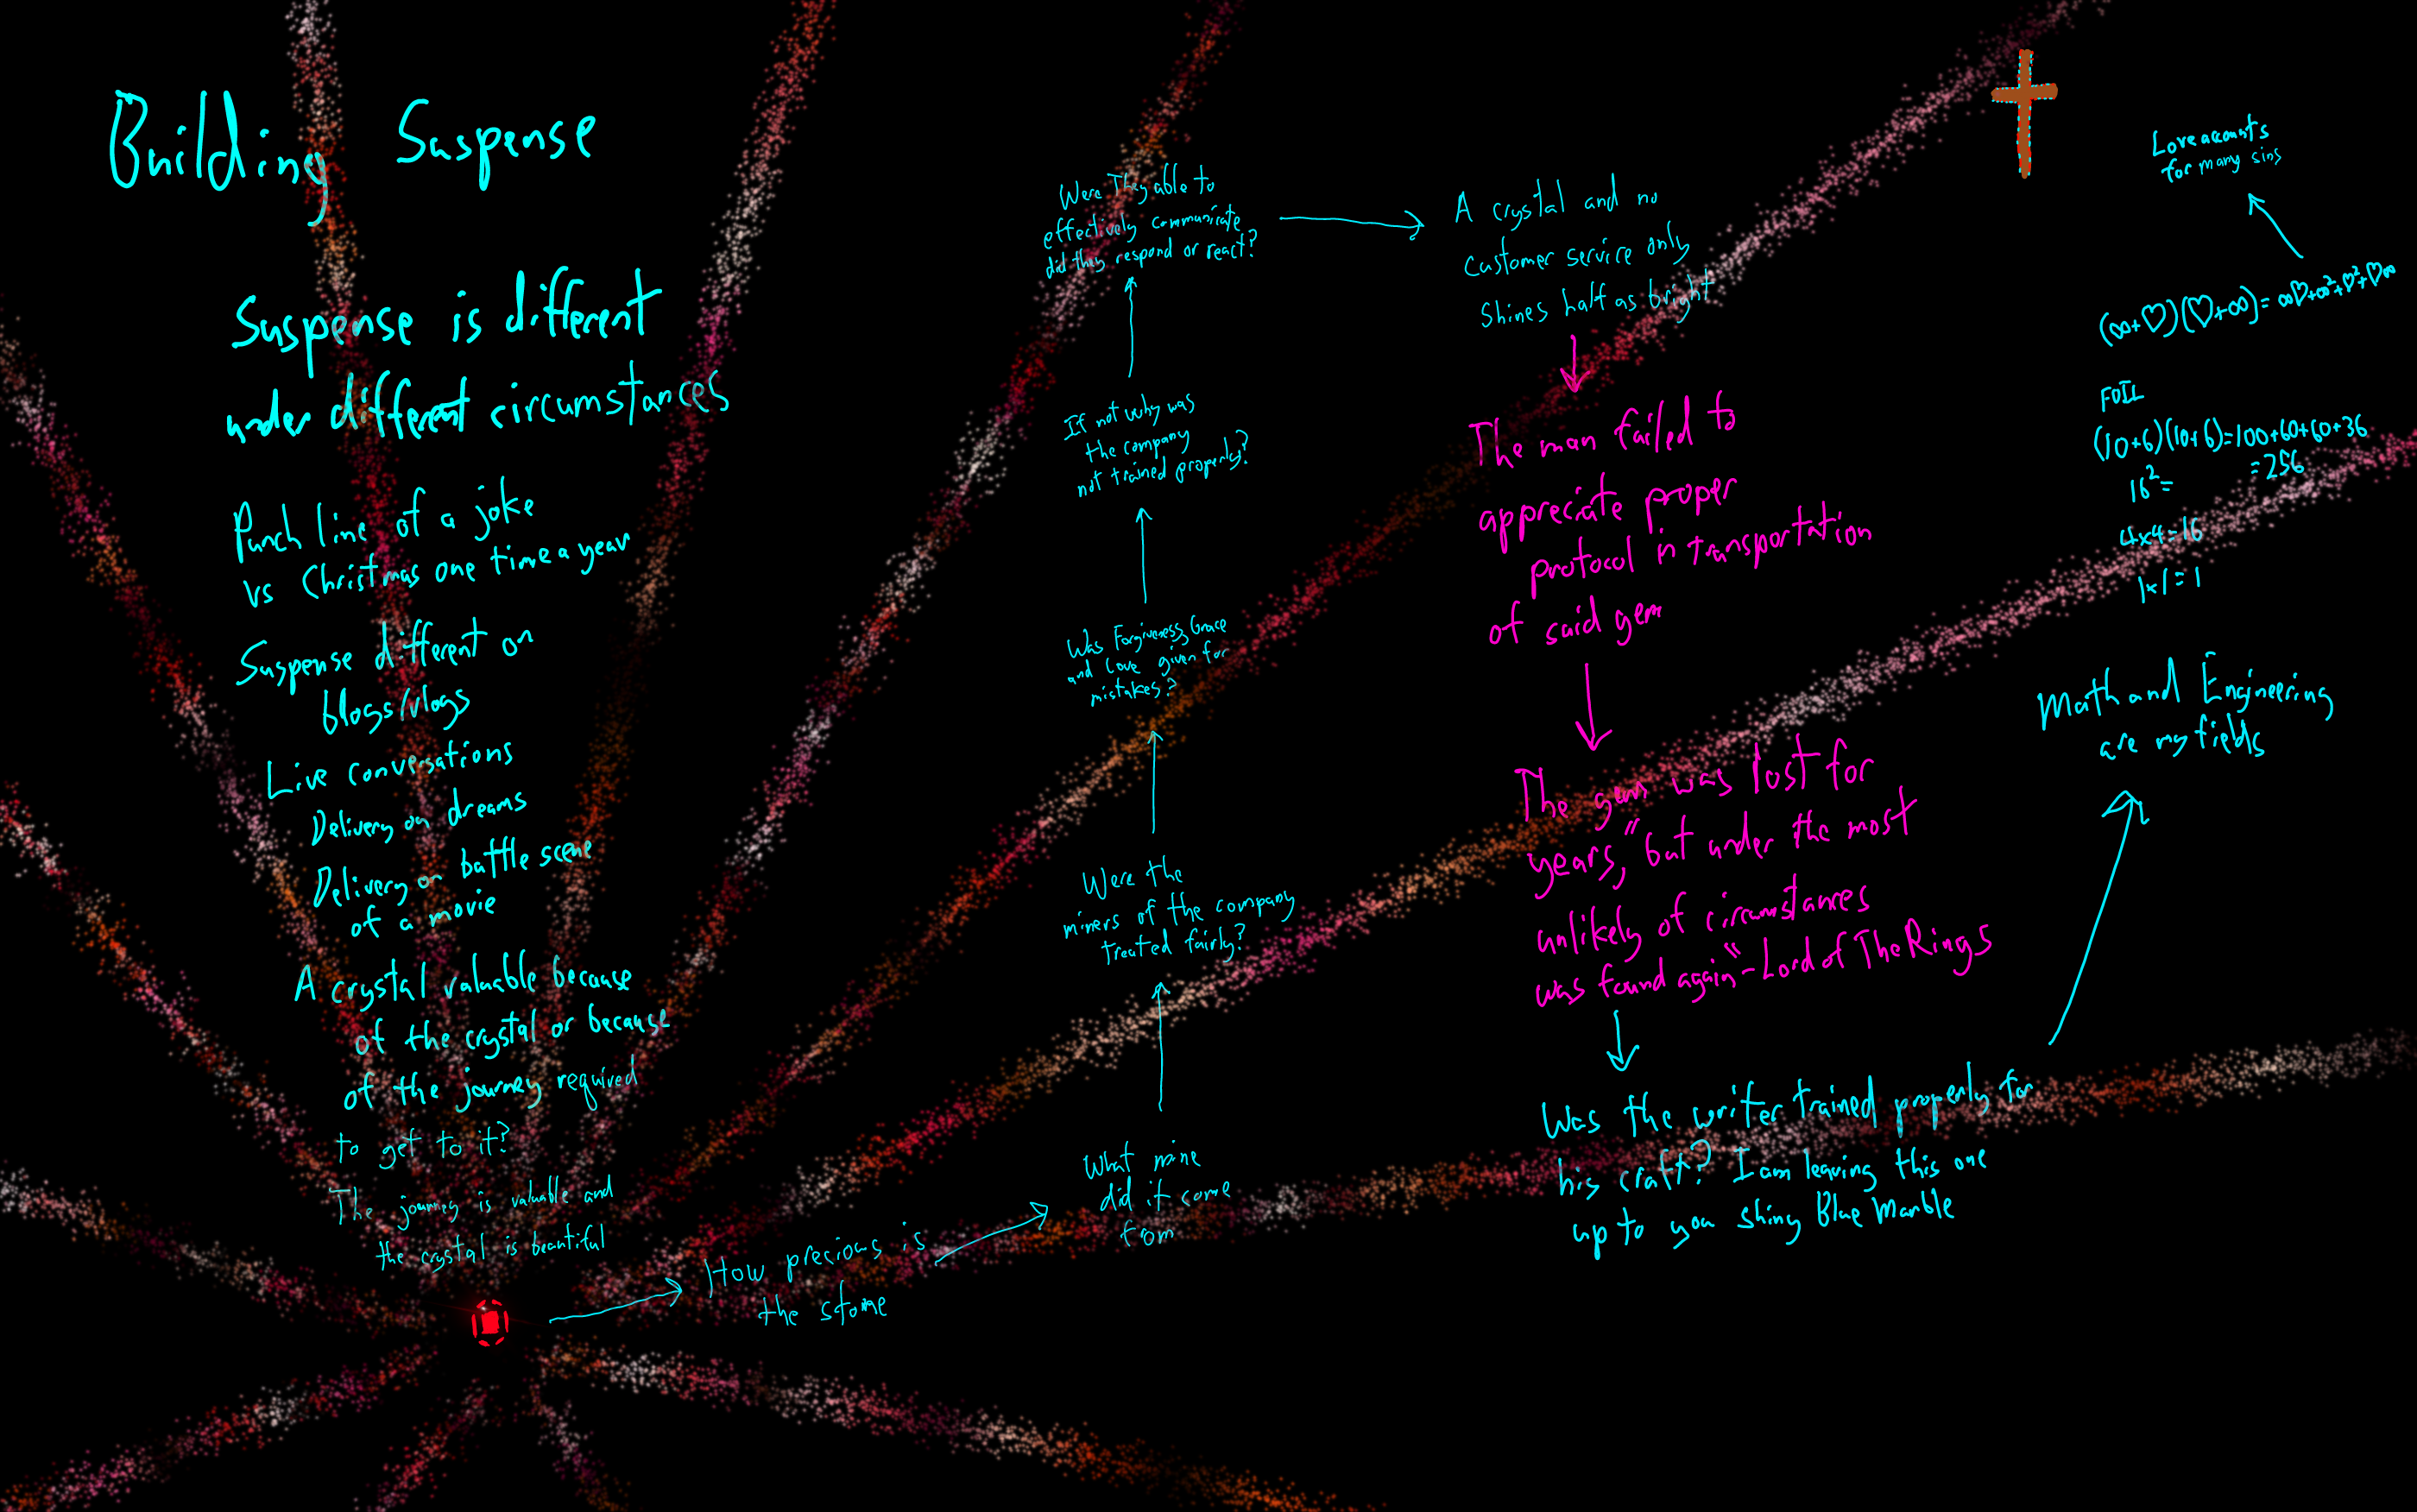 Building Suspense
Suspense is different
under different circumstances
Punch line of a joke
vs Christmas one time a year
Suspense different on
blogs/vlogs
Live conversations
Delivery on dreams
Delivery on battle scene
of a movie
A crystal valuable because
of the crystal or because
of the journey required
to get to it?
The journey is valuable and
the crystal is beautiful
How precious is
the stone
What mine
did it come
from
Were the
miners of the company
treated fairly?
Was Forgiveness, Grace
and Love given for
mistakes?
If not why was
the company
not trained properly?
Were They able to
effectively communicate
did they respond or react?
A crystal and no
customer service only
shines half as bright
The man failed to
appreciate proper
protocol in transportation
of said gem
The gem was lost for
years, "but under the most
unlikely of circumstances
was found again" - Lord of The Rings
Was the writer trained properly for
his craft? I am leaving this one
up to you shiny Blue Marble
Math and Engineering
are my fields
FOIL
(10+6)(10+6)=100+60+60+36
16²= =256
4x4=16
1x1=1
(∞+♡)(♡+∞)=∞♡+∞²+♡²+♡∞
Love accounts
for many sins